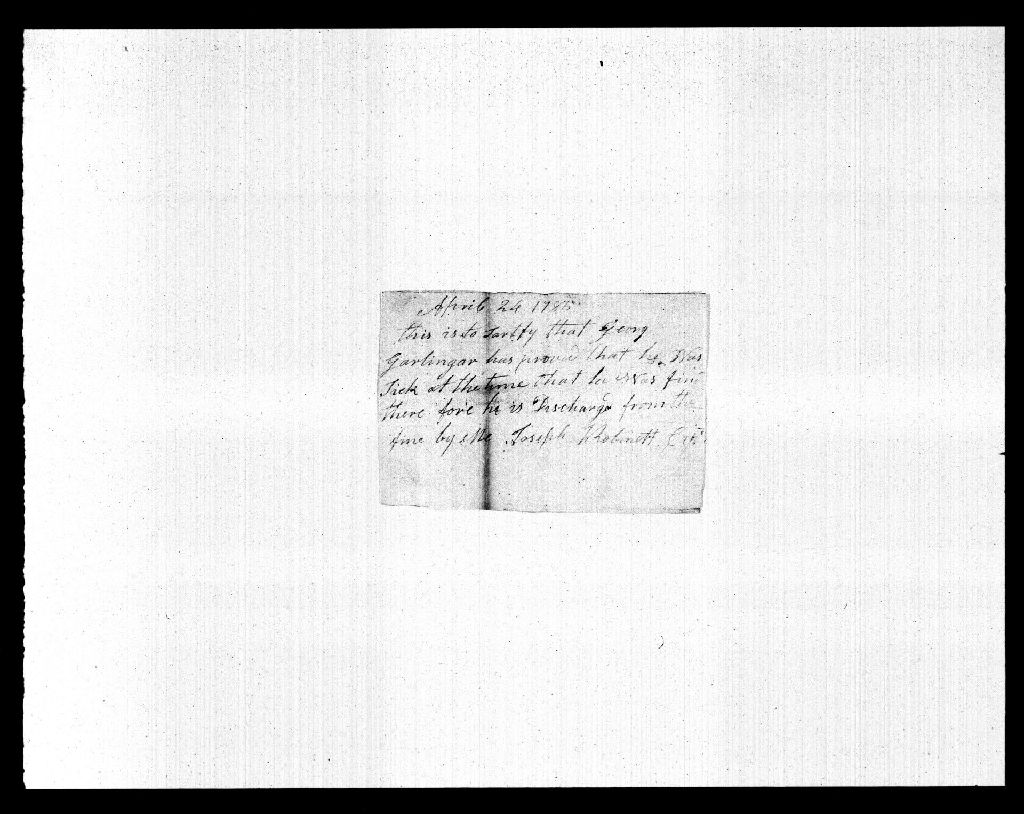 April 24 1785
this is to sartify that Georg
Garlingar has proved that he Was
Sick at the time that he Was fin
there fore he is Discharga from the
fine by Me Joseph Robinett